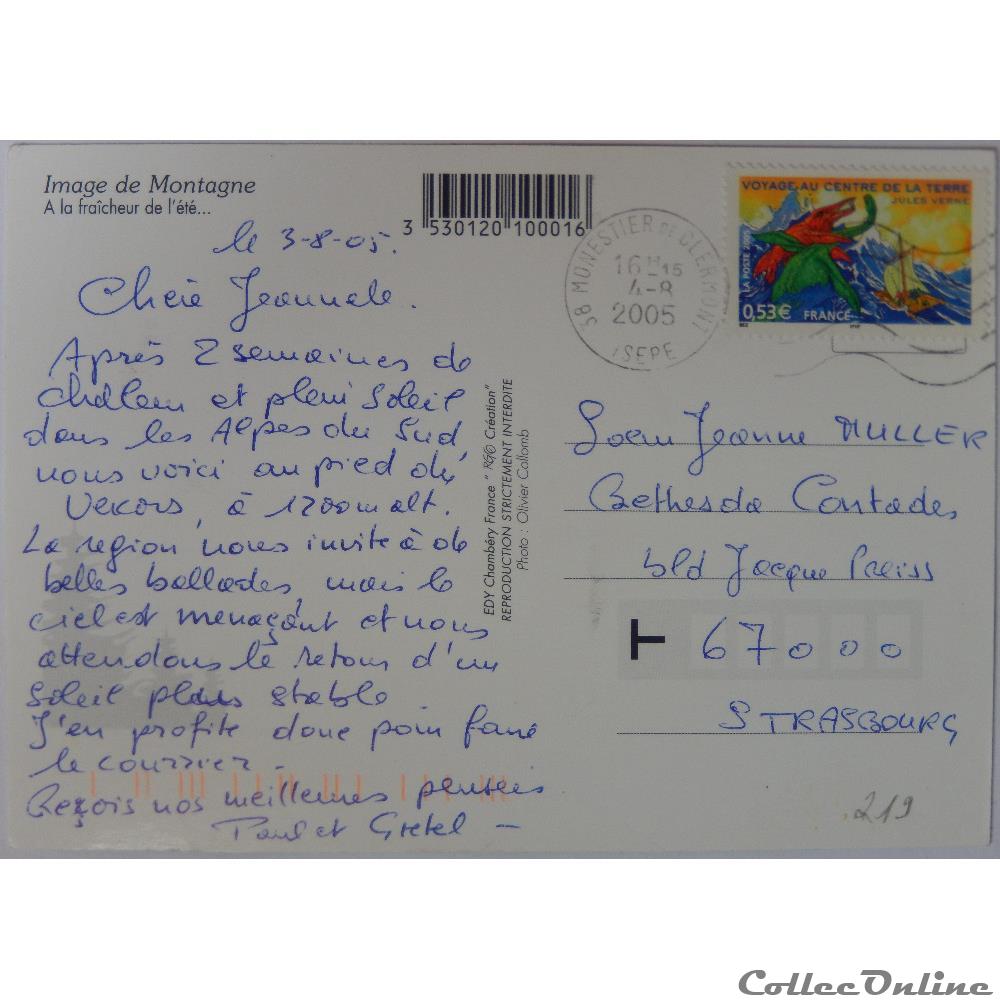 Image de Montagne
A la fraîcheur de l'été...
3 530120 100016
le 3-8-05.
Chère Jeannole.
Après 2 semaines de
chaleur et plein soleil
dans les Alpes du Sud,
nous voici au pied du
Vercors, à 1200m alt.
La region nous invite à de
belles ballades, mais le
ciel est menaçant et nous
attendons le retour d'un
soleil plus stable
J'en profite donc pour faire
le courrier -
Reçois nos meilleures pensées
Paul et Gretel -
EDY Chambéry France " RGO Création"
REPRODUCTION STRICTEMENT INTERDITE
Photo : Olivier Collomb
38 MONESTIER DE CLERMONT
16H15
4-8
2005
ISERE
VOYAGE AU CENTRE DE LA TERRE
JULES VERNE
LA POSTE 2005
0,53€ FRANCE
Soeur Jeanne MULLER
Bethesda Contades
bld Jacque Preiss
67000
STRASBOURG
219
CollecOnline